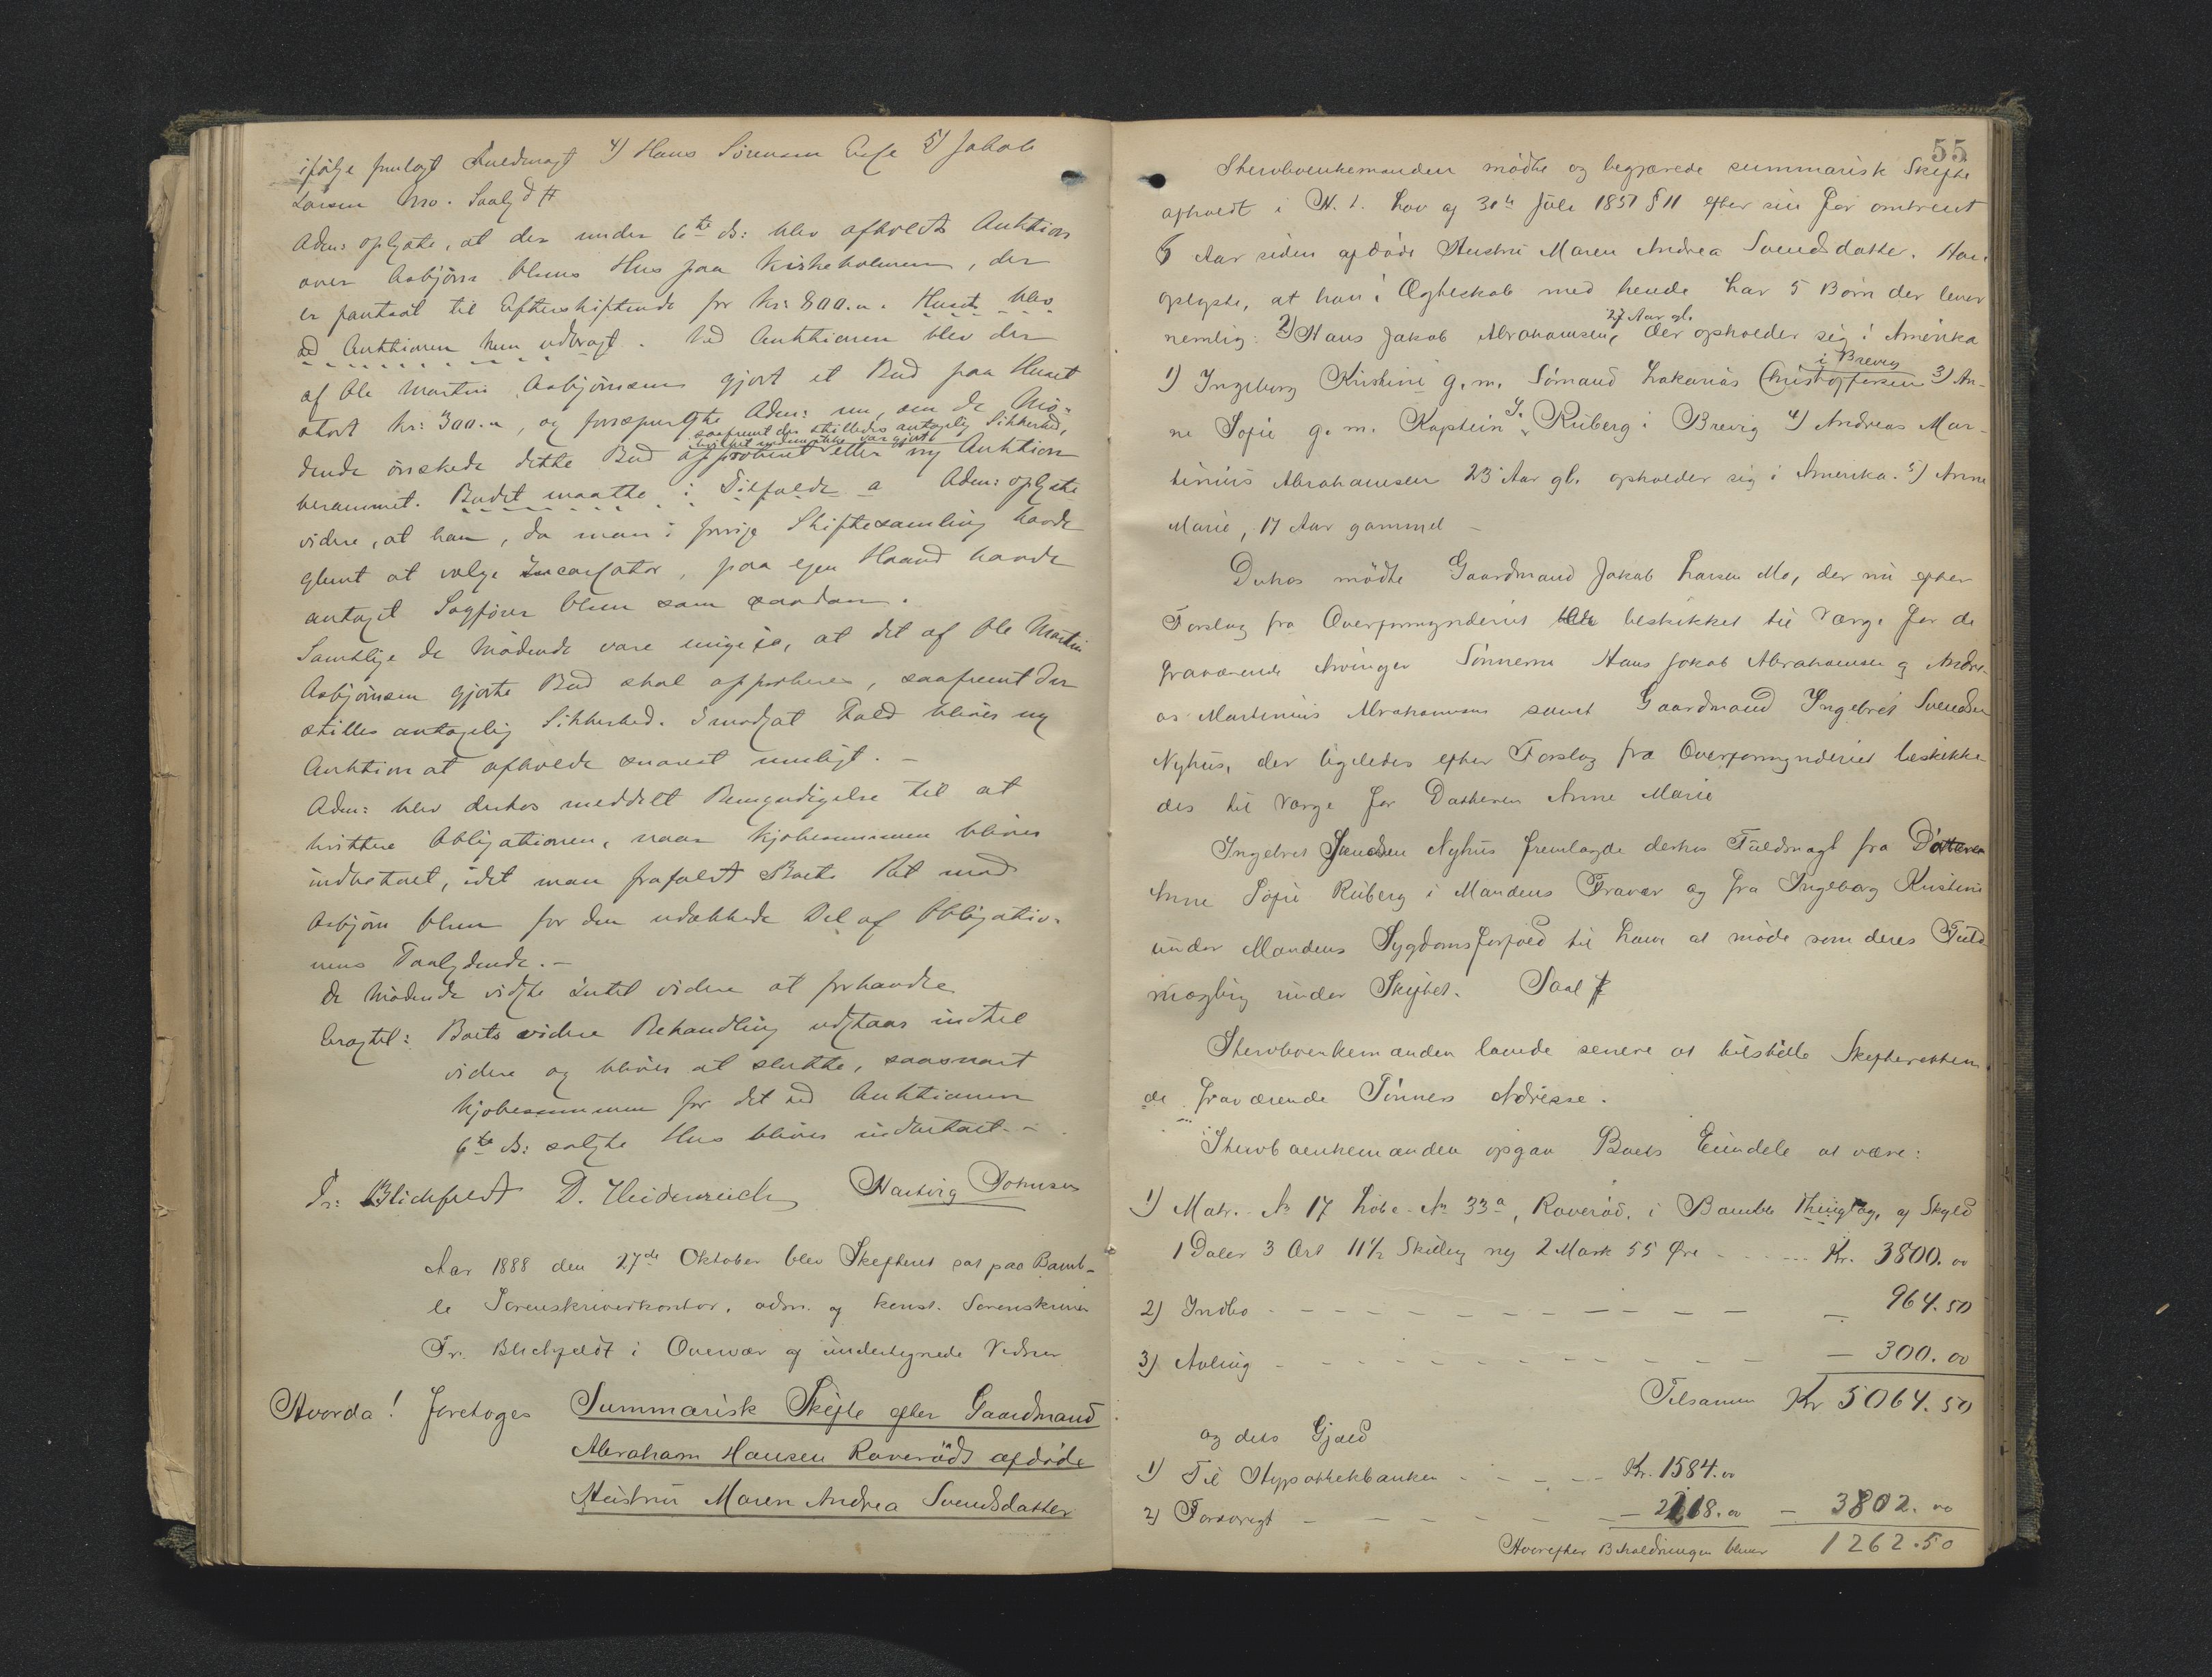 ifølge fremlagt Fuldmagt 4) Hans Sørensen 5) Jakob
Larsen Mo. Saalydt #
Adm: oplyste, at der under 6te ds: blev afholdt Auktion
over Asbjørn Olsens Hus paa Kirkeholmen, der
er pantsat til Efterskiftende for Kr: 800.. Huset blev
ved Auktionen kun udbragt. Ved Auktionen blev der
af Ole Martin Asbjørnsen gjort et Bud paa Huset
stort Kr: 300.., og forespurgte Adm: nu, om de Mø-
saafremt der stilledes antagelig Sikkerhed,
hvilket endnu ikke var gjort
dende ønskede dette Bud approberet eller ny Auktion
berammet. Budet maatte i Tilfælde a Adm: oplyste
videre, at han, da man i forrige Skiftesamling havde
glemt at vælge Incassator, paa egen Haand havde
antaget Sagfører Olsen som saadan.
Samtlige de Mødende vare enige i, at det af Ole Martin
Asbjørnsen gjorte Bud skal approberes, saafremt der
stilles antagelig Sikkerhed. I modsat Fald bliver ny
Auktion at afholde snarest muligt. –
Adm: blev derhos meddelt Bemyndigelse til at
kvittere Obligationen, naar Kjøbesummen bliver
indbetalt, idet man frafaldt Boets Ret mod
Asbjørn Olsen for den udækkede Del af Obligatio-
nens Paalydende. –
De Mødende vidste Intet videre at forhandle
Eragtet: Boets videre Behandling udstaar indtil
videre og bliver at slutte, saasnart
Kjøbesummen for det ved Auktionen
6te ds: solgte Hus bliver indbetalt. –
Fr: Blichfeldt D. Heidenreich Hartvig Johnsen
Aar 1888 den 27de Oktober blev Skifteret sat paa Bamb-
le Sorenskriverkontor, adm. af konst. Sorenskriver
Fr. Blichfeldt i Overvær af undertegnede Vidner
Hvorda! foretoges Summarisk Skifte efter Gaardmand
Abraham Hansen Raverøds afdøde
Hustru Maren Andrea Svendsdatter
55
Stervboenkemanden mødte og begjærede summarisk Skifte
afholdt i H. t. Lov af 30te Juli 1851 § 11 efter sin for omtrent
6 Aar siden afdøde Hustru Maren Andrea Svendsdatter. Han
oplyste, at han i Ægteskab med hende har 5 Børn der lever
27 Aar gl.
nemlig: 2) Hans Jakob Abrahamsen, der opholder sig i Amerika
i Brevig
1) Ingeborg Kirstine g. m. Sømand Zakarias Christoffersen 3) An-
ne Sofie g. m. Kaptein J. Riiberg i Brevig 4) Andreas Mar-
tinius Abrahamsen 23 Aar gl. opholder sig i Amerika. 5) Anne
Marie, 17 Aar gammel –
Derhos mødte Gaardmand Jakob Larsen Mo, der nu efter
Forslag fra Overformynderiet beskikket til Værge for de
fraværende Arvinger Sønnerne Hans Jakob Abrahamsen og Andre-
as Martinius Abrahamsen samt Gaardmand Ingebret Svendsen
Nyhus, der ligeledes efter Forslag fra Overformynderiet beskikke-
des til Værge for Datteren Anne Marie
Ingebret Svendsen Nyhus fremlagde derhos Fuldmagt fra Døtrene
Anne Sofie Riiberg i Mandens Fravær og fra Ingeborg Kirstine
under Mandens Sygdomsforfald til ham at møde som deres Fuld
mægtig under Skiftet. Saal #
Stervboenkemanden lovede senere at tilstille Skifteretten
de fraværende Sønners Adresse.
Stervboenkemanden opgav Boets Eiendele at være:
1) Matr. No 17 Løbe No 33a, Raverød, i Bamble Thinglag, af Skyld
1 Daler 3 Ort 11 1/2 Skilling ny 2 Mark 55 Øre - - - - - Kr. 3800.00
2) Indbo - - - - - - - - - - - - - 964.50
3) Avling - - - - - - - - - - - - - 300.00
Tilsamen Kr 5064.50
og dets Gjæld
1) Til Hypothekbanken - - - - - Kr. 1584.00
2) Forøvrigt - - - - - - 2218.00 - 3802.00
Hvorefter Beholdningen bliver 1262.50